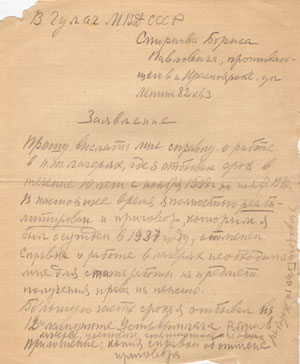 В Гулаг МВД СССР
Смирнова Бориса
Павловича, проживаю-
щего в г. Красноярске, ул
Ленина 82 кв 3
Заявление
Прошу выслать мне справку о работе
в лагерях, где я отбывал срок в
течение 10 лет с ноября
В настоящее время я полностью реаби-
литирован и приговор, которым я
был осужден в 1937 году, отменен
Справка о работе в лагерях необходима
мне для стажа работы на предмет
получения права на пенсию.
Большую часть срока я отбывал на
12 лагпункте Устьвымлага
Приложение: копия справки об отмене
приговора